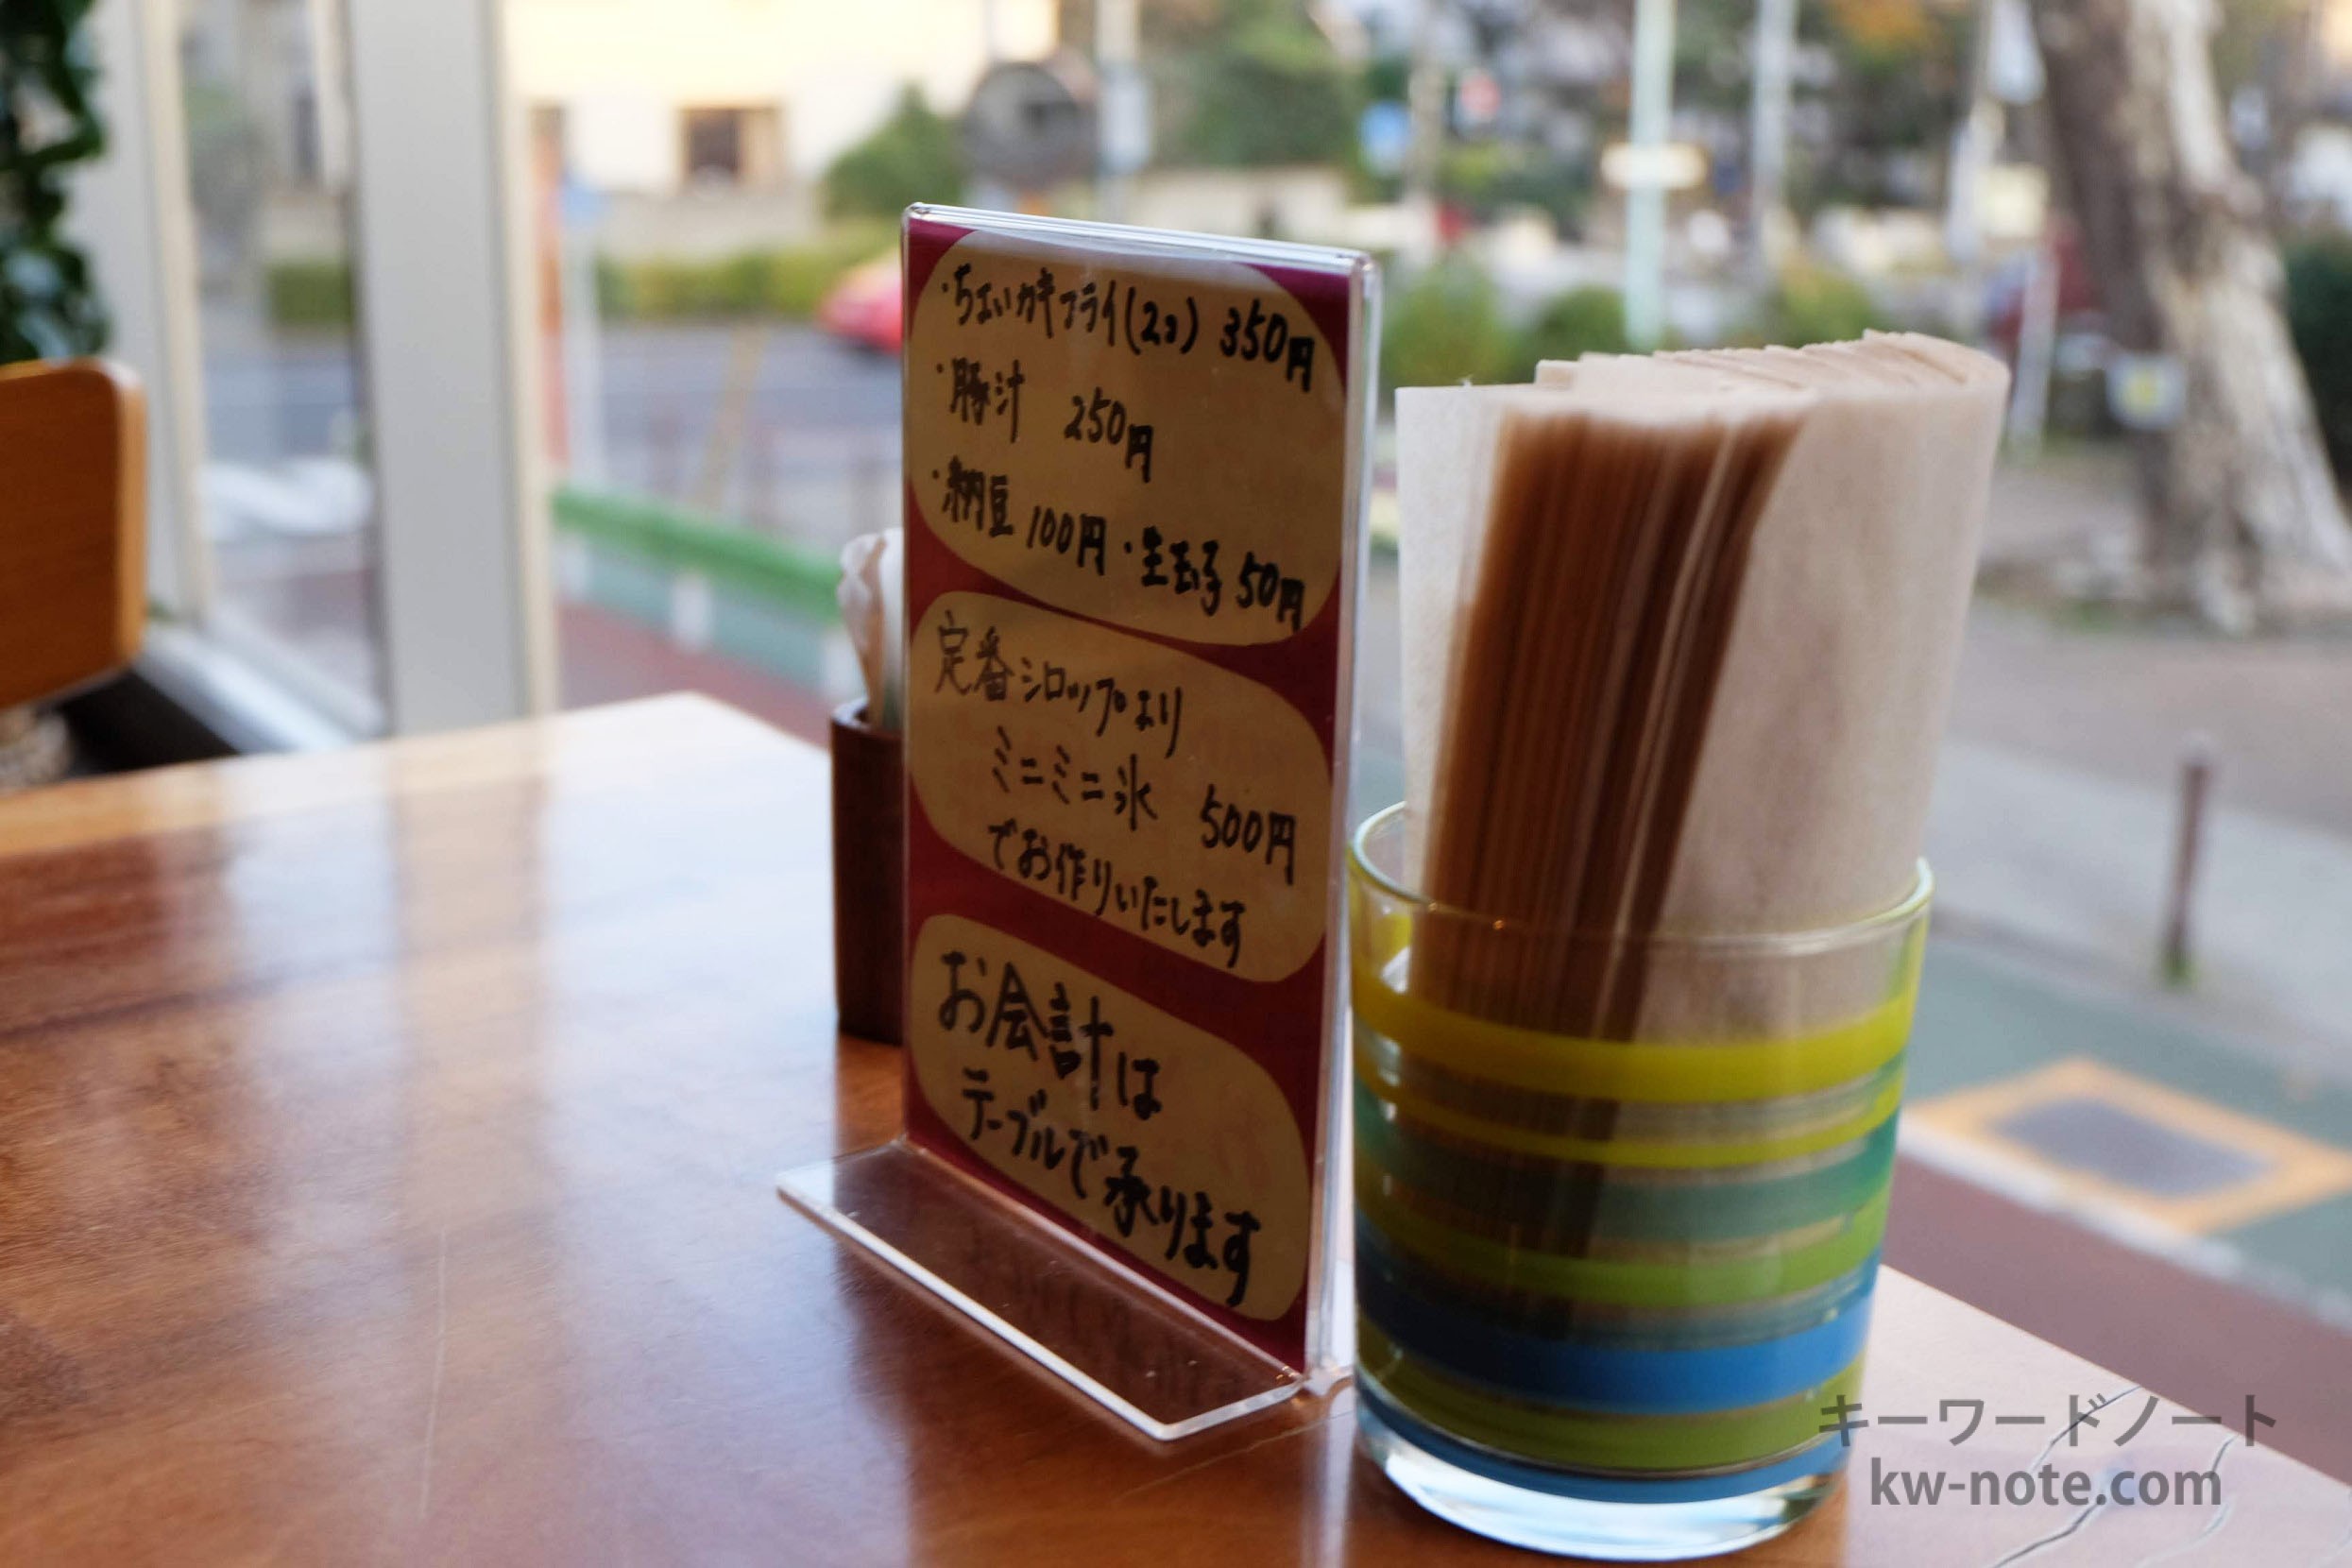 ・ちょいカキフライ(2コ) 350円
・豚汁 250円
・納豆 100円 ・生玉子 50円
定番シロップより
ミニミニ氷 500円
でお作りいたします
お会計は
テーブルで承ります
キーワードノート
kw-note.com